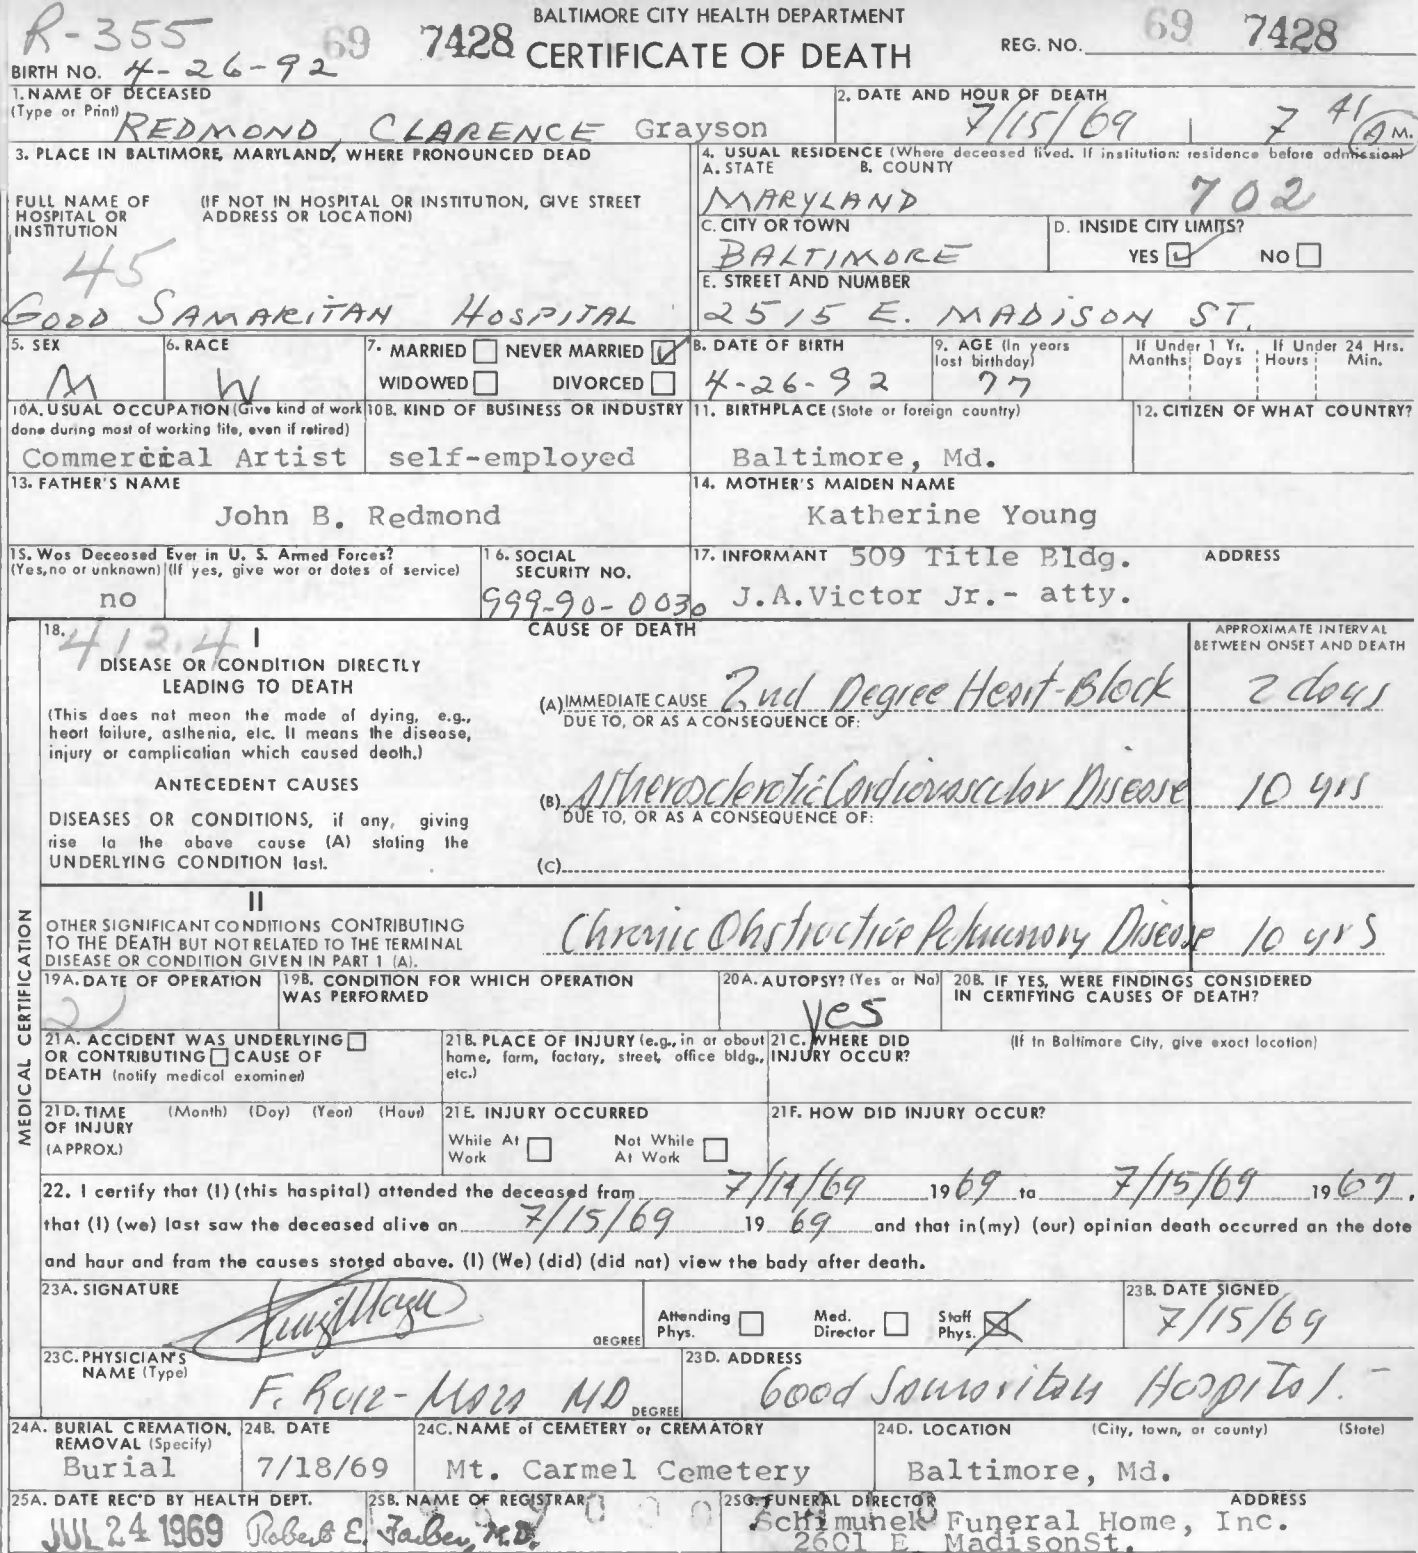 R-355
69 7428
BALTIMORE CITY HEALTH DEPARTMENT
CERTIFICATE OF DEATH
REG. NO. 69 7428
BIRTH NO. 4-26-92
1. NAME OF DECEASED
(Type or Print)
REDMOND, CLARENCE Grayson
2. DATE AND HOUR OF DEATH
7/15/69 7 41 A M.
3. PLACE IN BALTIMORE, MARYLAND, WHERE PRONOUNCED DEAD
FULL NAME OF HOSPITAL OR INSTITUTION
(IF NOT IN HOSPITAL OR INSTITUTION, GIVE STREET ADDRESS OR LOCATION)
45
GOOD SAMARITAN HOSPITAL
4. USUAL RESIDENCE (Where deceased lived. If institution: residence before admission)
A. STATE B. COUNTY
MARYLAND 702
C. CITY OR TOWN
BALTIMORE
D. INSIDE CITY LIMITS?
YES NO
E. STREET AND NUMBER
2515 E. MADISON ST.
5. SEX
M
6. RACE
W
7. MARRIED NEVER MARRIED
WIDOWED DIVORCED
8. DATE OF BIRTH
4-26-92
9. AGE (In years last birthday)
77
If Under 1 Yr. If Under 24 Hrs.
Months Days Hours Min.
10A. USUAL OCCUPATION (Give kind of work done during most of working life, even if retired)
Commercial Artist
10B. KIND OF BUSINESS OR INDUSTRY
self-employed
11. BIRTHPLACE (State or foreign country)
Baltimore, Md.
12. CITIZEN OF WHAT COUNTRY?
13. FATHER'S NAME
John B. Redmond
14. MOTHER'S MAIDEN NAME
Katherine Young
15. Was Deceased Ever in U. S. Armed Forces?
(Yes, no or unknown) (If yes, give war or dates of service)
no
16. SOCIAL SECURITY NO.
999-90-0030
17. INFORMANT 509 Title Bldg. ADDRESS
J.A.Victor Jr.- atty.
MEDICAL CERTIFICATION
18. 412.4
I
DISEASE OR CONDITION DIRECTLY
LEADING TO DEATH
(This does not mean the mode of dying, e.g.,
heart failure, asthenia, etc. It means the disease,
injury or complication which caused death.)
ANTECEDENT CAUSES
DISEASES OR CONDITIONS, if any, giving
rise to the above cause (A) stating the
UNDERLYING CONDITION last.
CAUSE OF DEATH
APPROXIMATE INTERVAL
BETWEEN ONSET AND DEATH
(A) IMMEDIATE CAUSE 2nd Degree Heart-Block 2 days
DUE TO, OR AS A CONSEQUENCE OF:
(B) Atherosclerotic Cardiovascular Disease 10 yrs
DUE TO, OR AS A CONSEQUENCE OF:
(C)
II
OTHER SIGNIFICANT CONDITIONS CONTRIBUTING
TO THE DEATH BUT NOT RELATED TO THE TERMINAL
DISEASE OR CONDITION GIVEN IN PART 1 (A).
Chronic Obstructive Pulmonary Disease 10 yrs
19A. DATE OF OPERATION
2
19B. CONDITION FOR WHICH OPERATION
WAS PERFORMED
20A. AUTOPSY? (Yes or No)
Yes
20B. IF YES, WERE FINDINGS CONSIDERED
IN CERTIFYING CAUSES OF DEATH?
21A. ACCIDENT WAS UNDERLYING
OR CONTRIBUTING CAUSE OF
DEATH (notify medical examiner)
21B. PLACE OF INJURY (e.g., in or about
home, farm, factory, street, office bldg.,
etc.)
21C. WHERE DID
INJURY OCCUR?
(If in Baltimore City, give exact location)
21D. TIME (Month) (Day) (Year) (Hour)
OF INJURY
(APPROX.)
21E. INJURY OCCURRED
While At Work Not While At Work
21F. HOW DID INJURY OCCUR?
22. I certify that (I) (this hospital) attended the deceased from 7/14/69 1969 to 7/15/69 1969,
that (I) (we) last saw the deceased alive on 7/15/69 19 69 and that in (my) (our) opinion death occurred on the date
and hour and from the causes stated above. (I) (We) (did) (did not) view the body after death.
23A. SIGNATURE
DEGREE
Attending Phys. Med. Director Staff Phys.
23B. DATE SIGNED
7/15/69
23C. PHYSICIAN'S
NAME (Type)
F. MD DEGREE
23D. ADDRESS
Good Samaritan Hospital.-
24A. BURIAL CREMATION,
REMOVAL (Specify)
Burial
24B. DATE
7/18/69
24C. NAME of CEMETERY or CREMATORY
Mt. Carmel Cemetery
24D. LOCATION (City, town, or county) (State)
Baltimore, Md.
25A. DATE REC'D BY HEALTH DEPT.
JUL 24 1969
25B. NAME OF REGISTRAR
Robert E. Farber, M.D.
25C. FUNERAL DIRECTOR ADDRESS
Schimunek Funeral Home, Inc.
2601 E. MadisonSt.